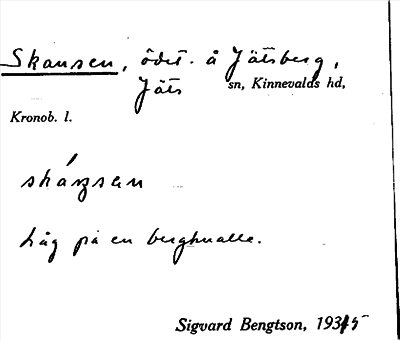 Skansen, ödet. å Jätsberg,
Jäts sn, Kinnevalds hd,
Kronob. l.
Låg på en bergknalle.
Sigvard Bengtson, 193